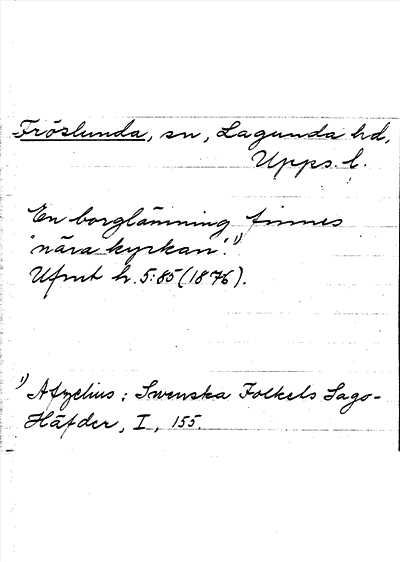 Fröslunda, sn, Lagunda hd,
Upps. l.
En borglämning finnes
"nära kyrkan". 1)
Ufmt h. 5:85 (1876).
1) Afzelius: Swenska Folkets Sago-
Häfder, I, 155.